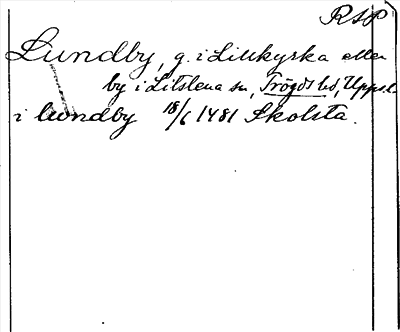 RSP
Lundby, g. i Lillkyrka eller
by i Litslena sn, Trögds hd, Upps. l.
i lwndby 18/6 1481 Skolsta.